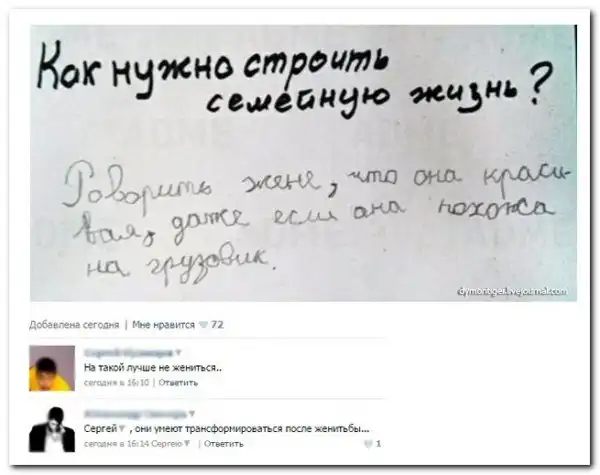 Как нужно строить
семейную жизнь?
Говорить жене, что она краси-
вая, даже если ана похожа
на грузовик.
dymontiger.livejournal.com
Добавлена сегодня | Мне нравится 72
На такой лучше не жениться..
сегодня в 16:10 | Ответить
Сергей , они умеют трансформироваться после женитьбы...
сегодня в 16:14 Сергею | Ответить 1